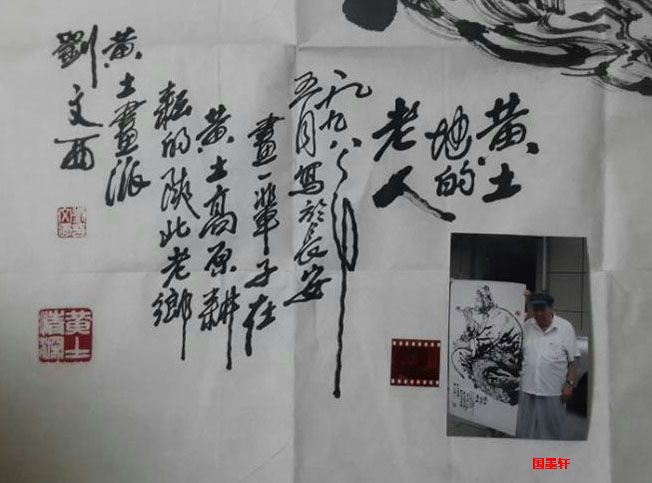 黄土
地的
老人
一九九八年
五月寫於長安
畫一輩子在
黄土高原耕
耘的陕北老鄉
黄土畫派
劉文西
黄土
情深
国墨轩